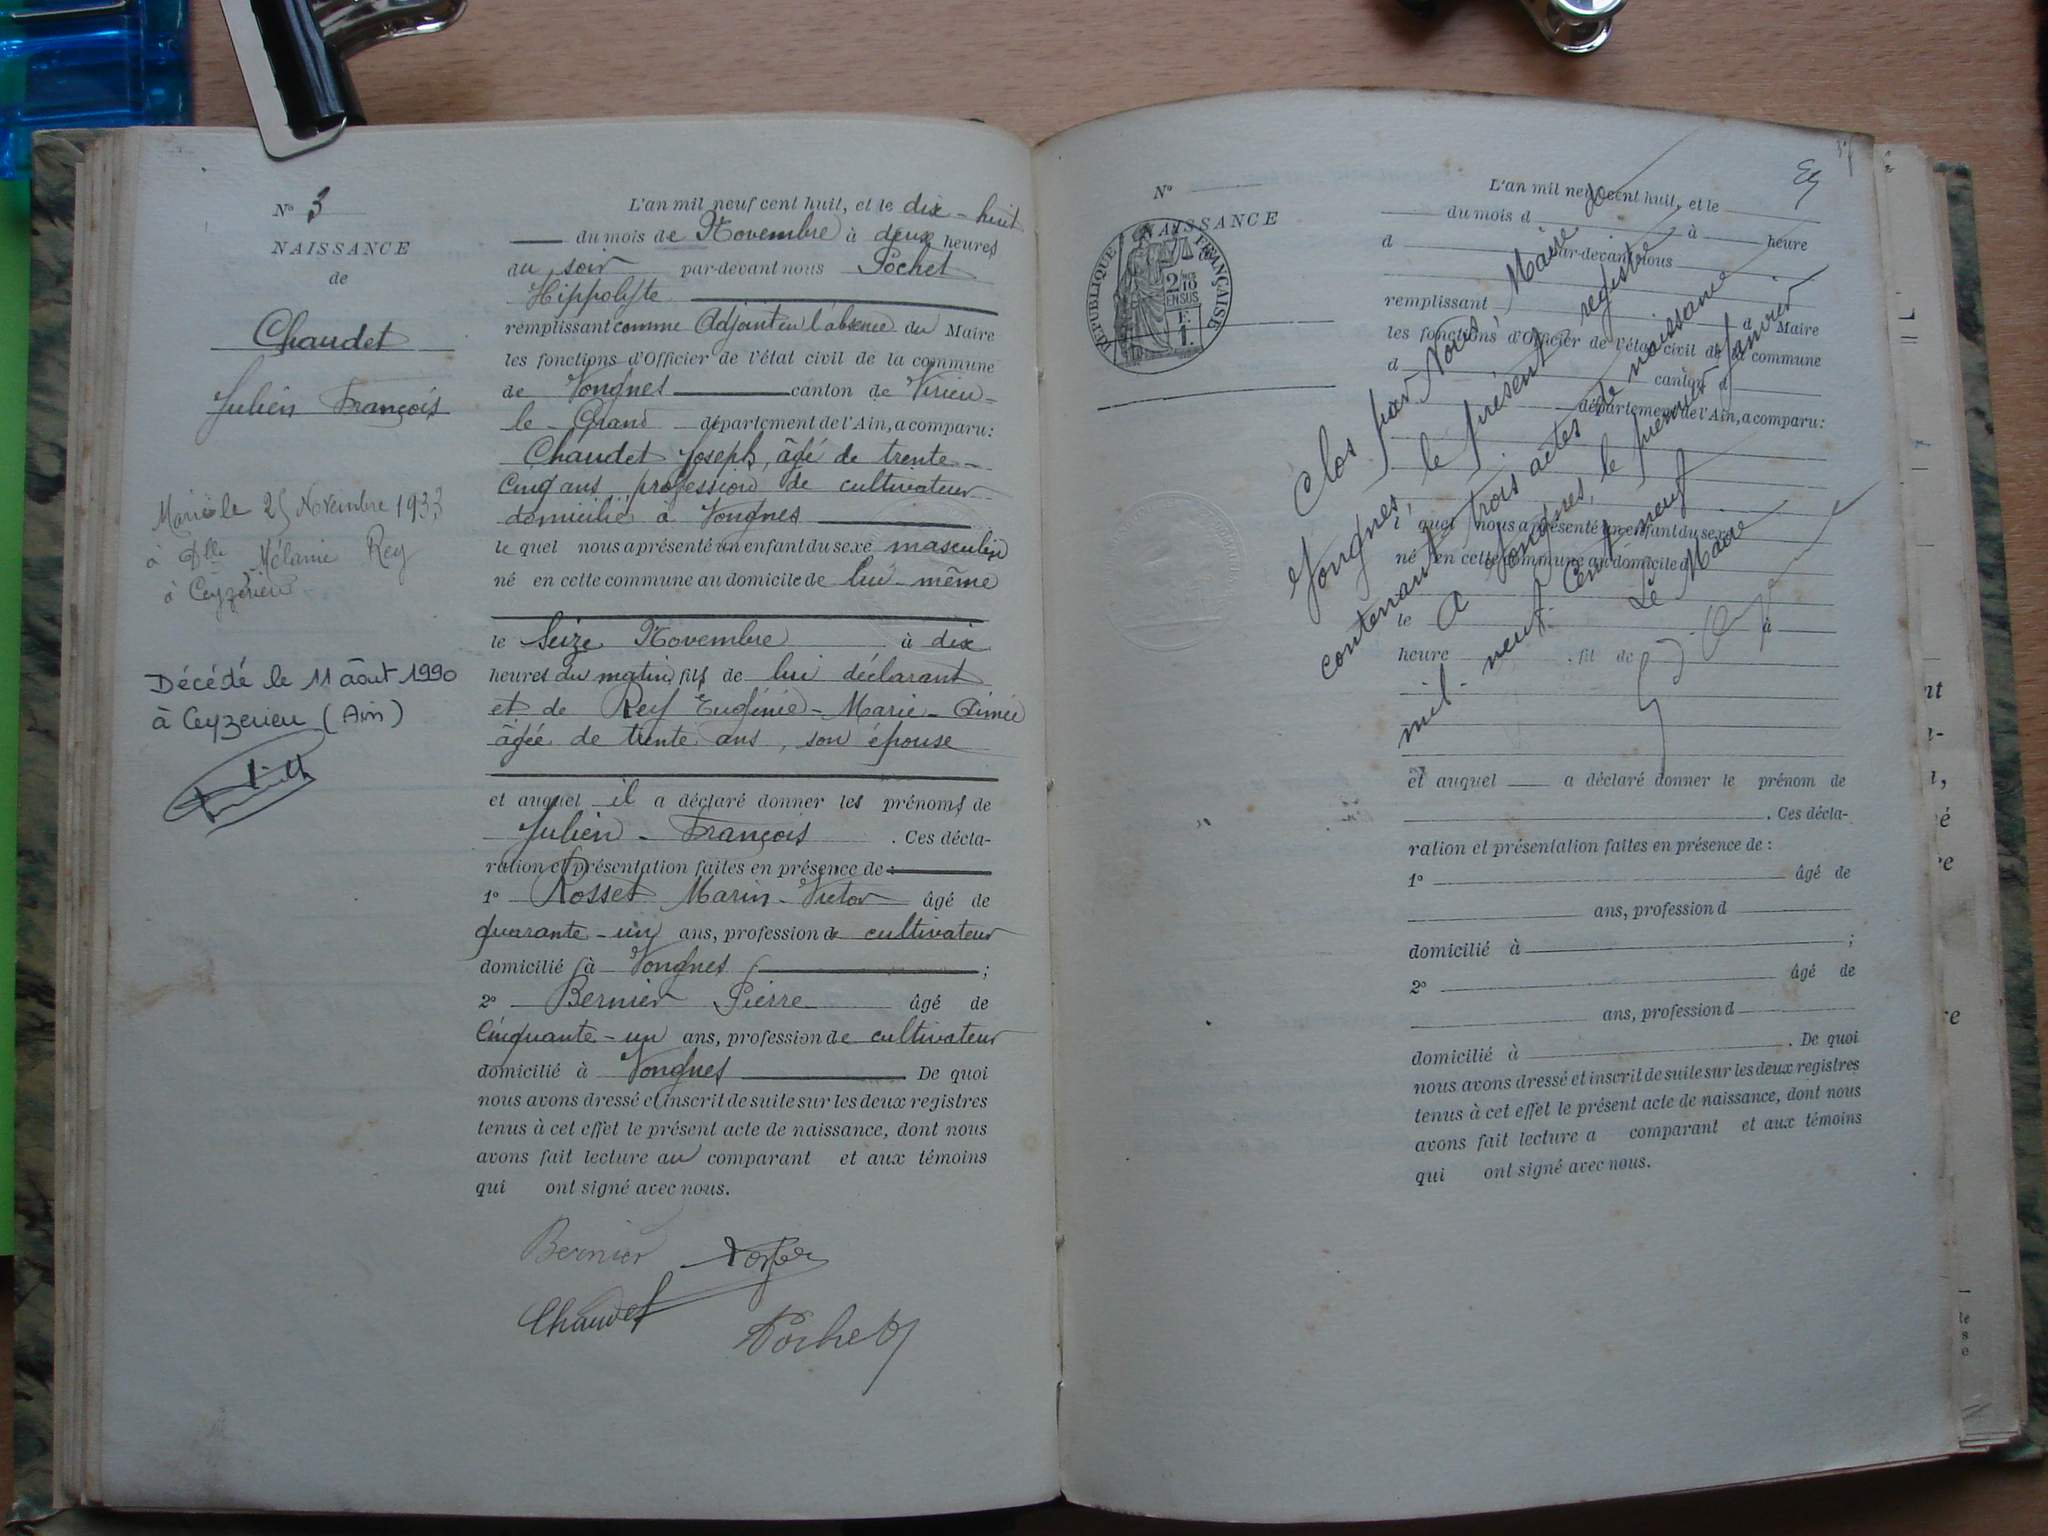 N° 3
NAISSANCE
de
Chaudet
Julien François
Marié le 25 Novembre 1933
à Dlle Mélanie Rey
à Ceyzérieu
Décédé le 11 août 1990
à Ceyzerieu (Ain)
L'an mil neuf cent huit, et le dix-huit
du mois de Novembre à deux heures
du soir par-devant nous Pochet
Hippolyte
remplissant comme Adjoint en l'absence du Maire
les fonctions d'Officier de l'état civil de la commune
de Vongnes canton de Virieu-
le-Grand département de l'Ain, a comparu:
Chaudet Joseph, âgé de trente-
cinq ans profession de cultivateur
domicilié à Vongnes
le quel nous a présenté un enfant du sexe masculin
né en cette commune au domicile de lui-même
le Seize Novembre à dix
heures du matin, fils de lui déclarant
et de Rey Eugénie-Marie-Aimée
âgée de trente ans, son épouse
et auquel il a déclaré donner les prénoms de
Julien-François . Ces décla-
ration et présentation faites en présence de :
1° Rosset Marin-Victor âgé de
quarante-un ans, profession de cultivateur
domicilié à Vongnes ;
2° Bernier Pierre âgé de
Cinquante-un ans, profession de cultivateur
domicilié à Vongnes De quoi
nous avons dressé et inscrit de suite sur les deux registres
tenus à cet effet le présent acte de naissance, dont nous
avons fait lecture au comparant et aux témoins
qui ont signé avec nous.
Bernier
Chaudet Pochet
N°
NAISSANCE
RÉPUBLIQUE FRANÇAISE
2/10
EN SUS
1.
L'an mil neuf cent huit, et le
du mois d à heure
d par-devant nous
remplissant d Maire
les fonctions d'Officier de l'état civil de la commune
d canton d
département de l'Ain, a comparu:
l quel nous a présenté un enfant du sexe
né en cette commune au domicile d
le à
heure , fil de
et auquel a déclaré donner le prénom de
. Ces décla-
ration et présentation faites en présence de :
1° âgé de
ans, profession d
domicilié à ;
2° âgé de
ans, profession d
domicilié à . De quoi
nous avons dressé et inscrit de suite sur les deux registres
tenus à cet effet le présent acte de naissance, dont nous
avons fait lecture a comparant et aux témoins
qui ont signé avec nous.
Clos par Nous, Maire de
Vongnes, le présent registre
contenant trois actes de naissance
A Vongnes, le premier Janvier
mil-neuf-cent-neuf
Le Maire